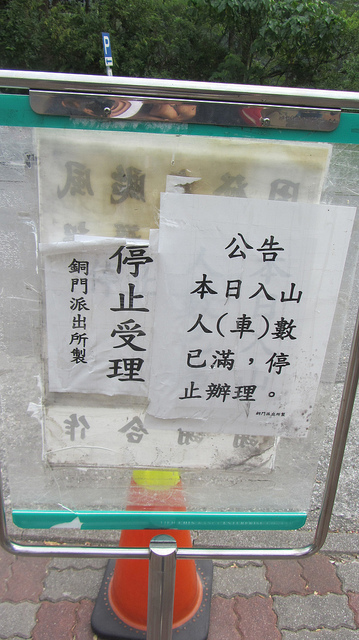 公告
本日入山
人(車)數
已滿，停
止辦理。
銅門派出所製
停止受理
銅門派出所製